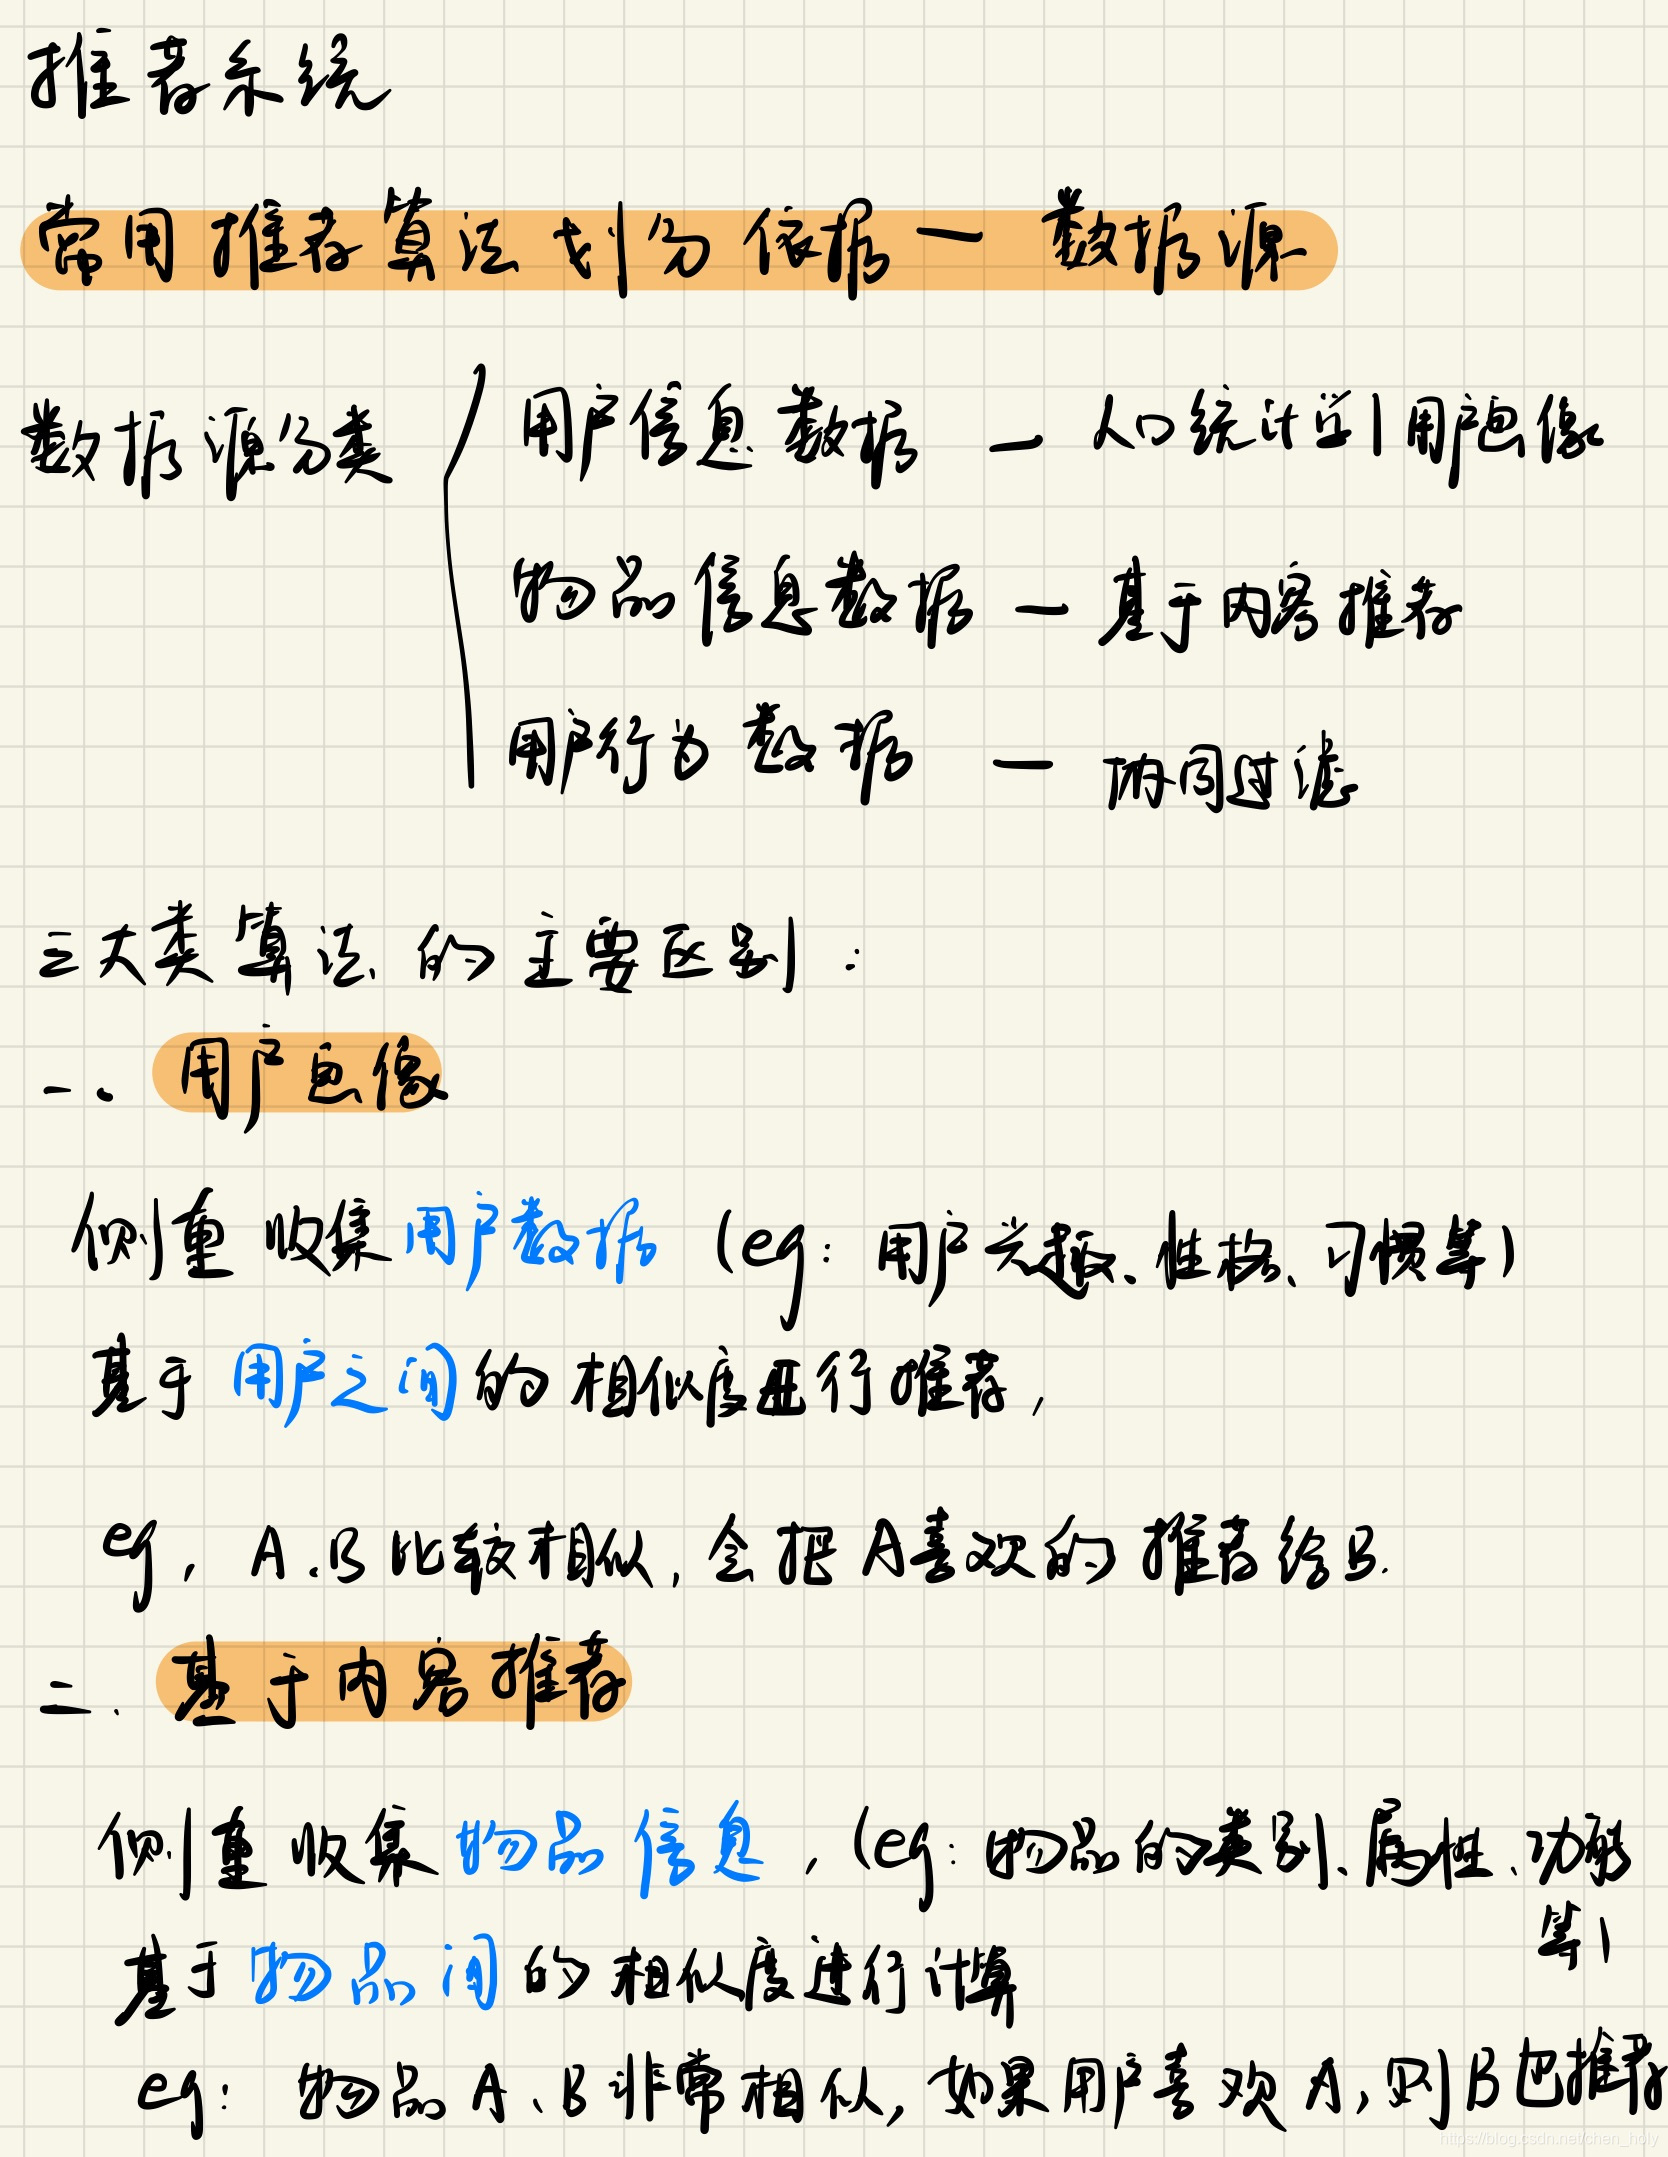 推荐系统
常用推荐算法划分依据一 数据源
数据源分类
用户信息数据 — 人口统计学|用户画像
物品信息数据 — 基于内容推荐
用户行为数据 — 协同过滤
三大类算法的主要区别:
一、用户画像
侧重收集用户数据 (eg: 用户兴趣、性格、习惯等)
基于用户之间的相似度进行推荐,
eg, A、B比较相似, 会把A喜欢的推荐给B.
二、基于内容推荐
侧重收集物品信息, (eg: 物品的类别、属性、功能
等)
基于物品间的相似度进行计算
eg: 物品A、B非常相似, 如果用户喜欢A, 则B也推荐
https://blog.csdn.net/chen_holy